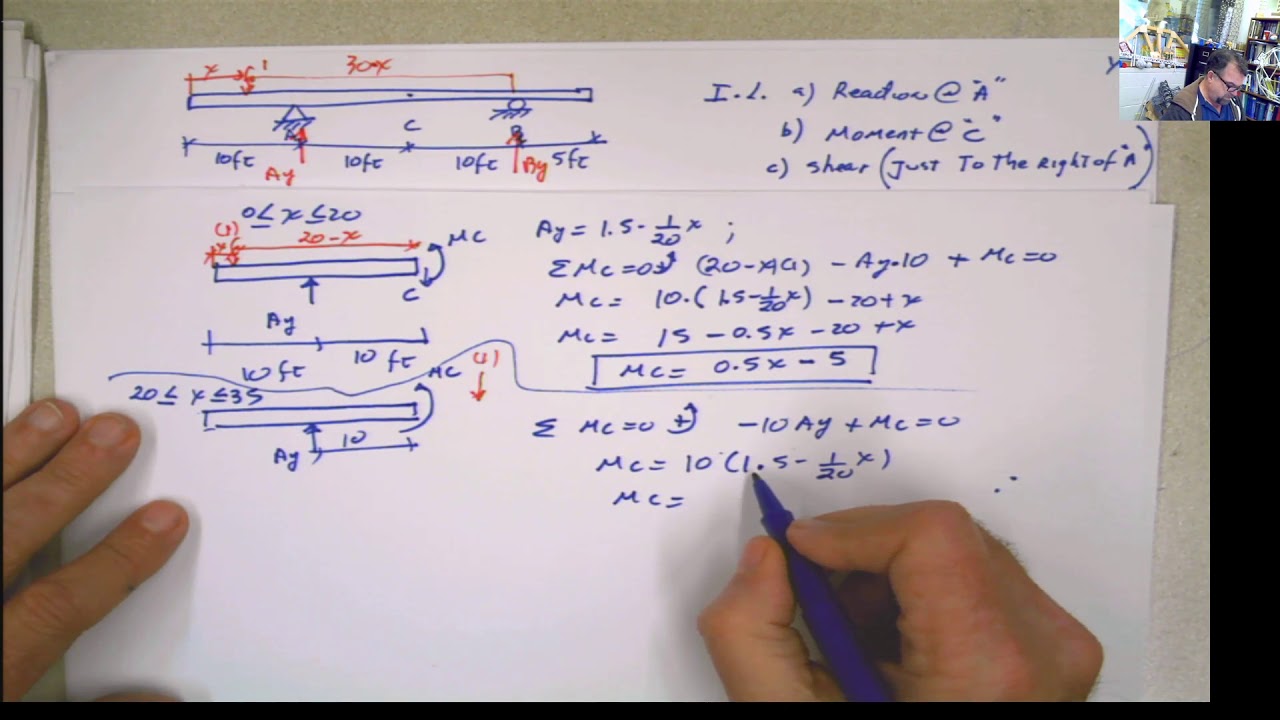 x 1 30-x
C
10ft 10ft 10ft 5ft
Ay By
I.L. a) Reaction @ "A"
b) Moment @ "C"
c) Shear (Just To The Right of "A")
0 ≤ x ≤ 20
(1)
x 20-x Mc
C
Ay
10ft 10 ft
Ay = 1.5 - 1/20 x ;
Σ Mc = 0 + (20-x)(1) - Ay·10 + Mc = 0
Mc = 10·(1.5 - 1/20 x) - 20 + x
Mc = 15 - 0.5x - 20 + x
Mc = 0.5x - 5
20 ≤ x ≤ 35 Mc (1)
Ay 10
Σ Mc = 0 + -10Ay + Mc = 0
Mc = 10 (1.5 - 1/20 x)
Mc =